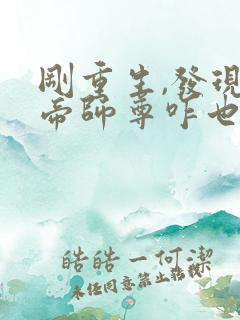 剛重生,發現
帝師尊咋也
皓皓一何潔
未經同意禁止搭載